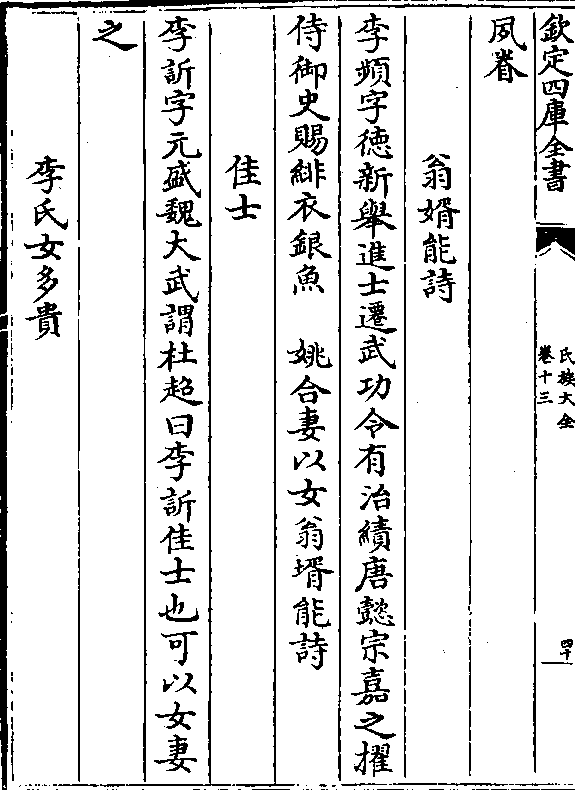 欽定四庫全書
氏族大全
卷十三
四十
夙眷
翁婿能詩
李頻字德新舉進士遷武功令有治績唐懿宗嘉之擢
侍御史賜緋衣銀魚　姚合妻以女翁壻能詩
佳士
李訢字元盛魏大武謂杜超曰李訢佳士也可以女妻
之
李氏女多貴